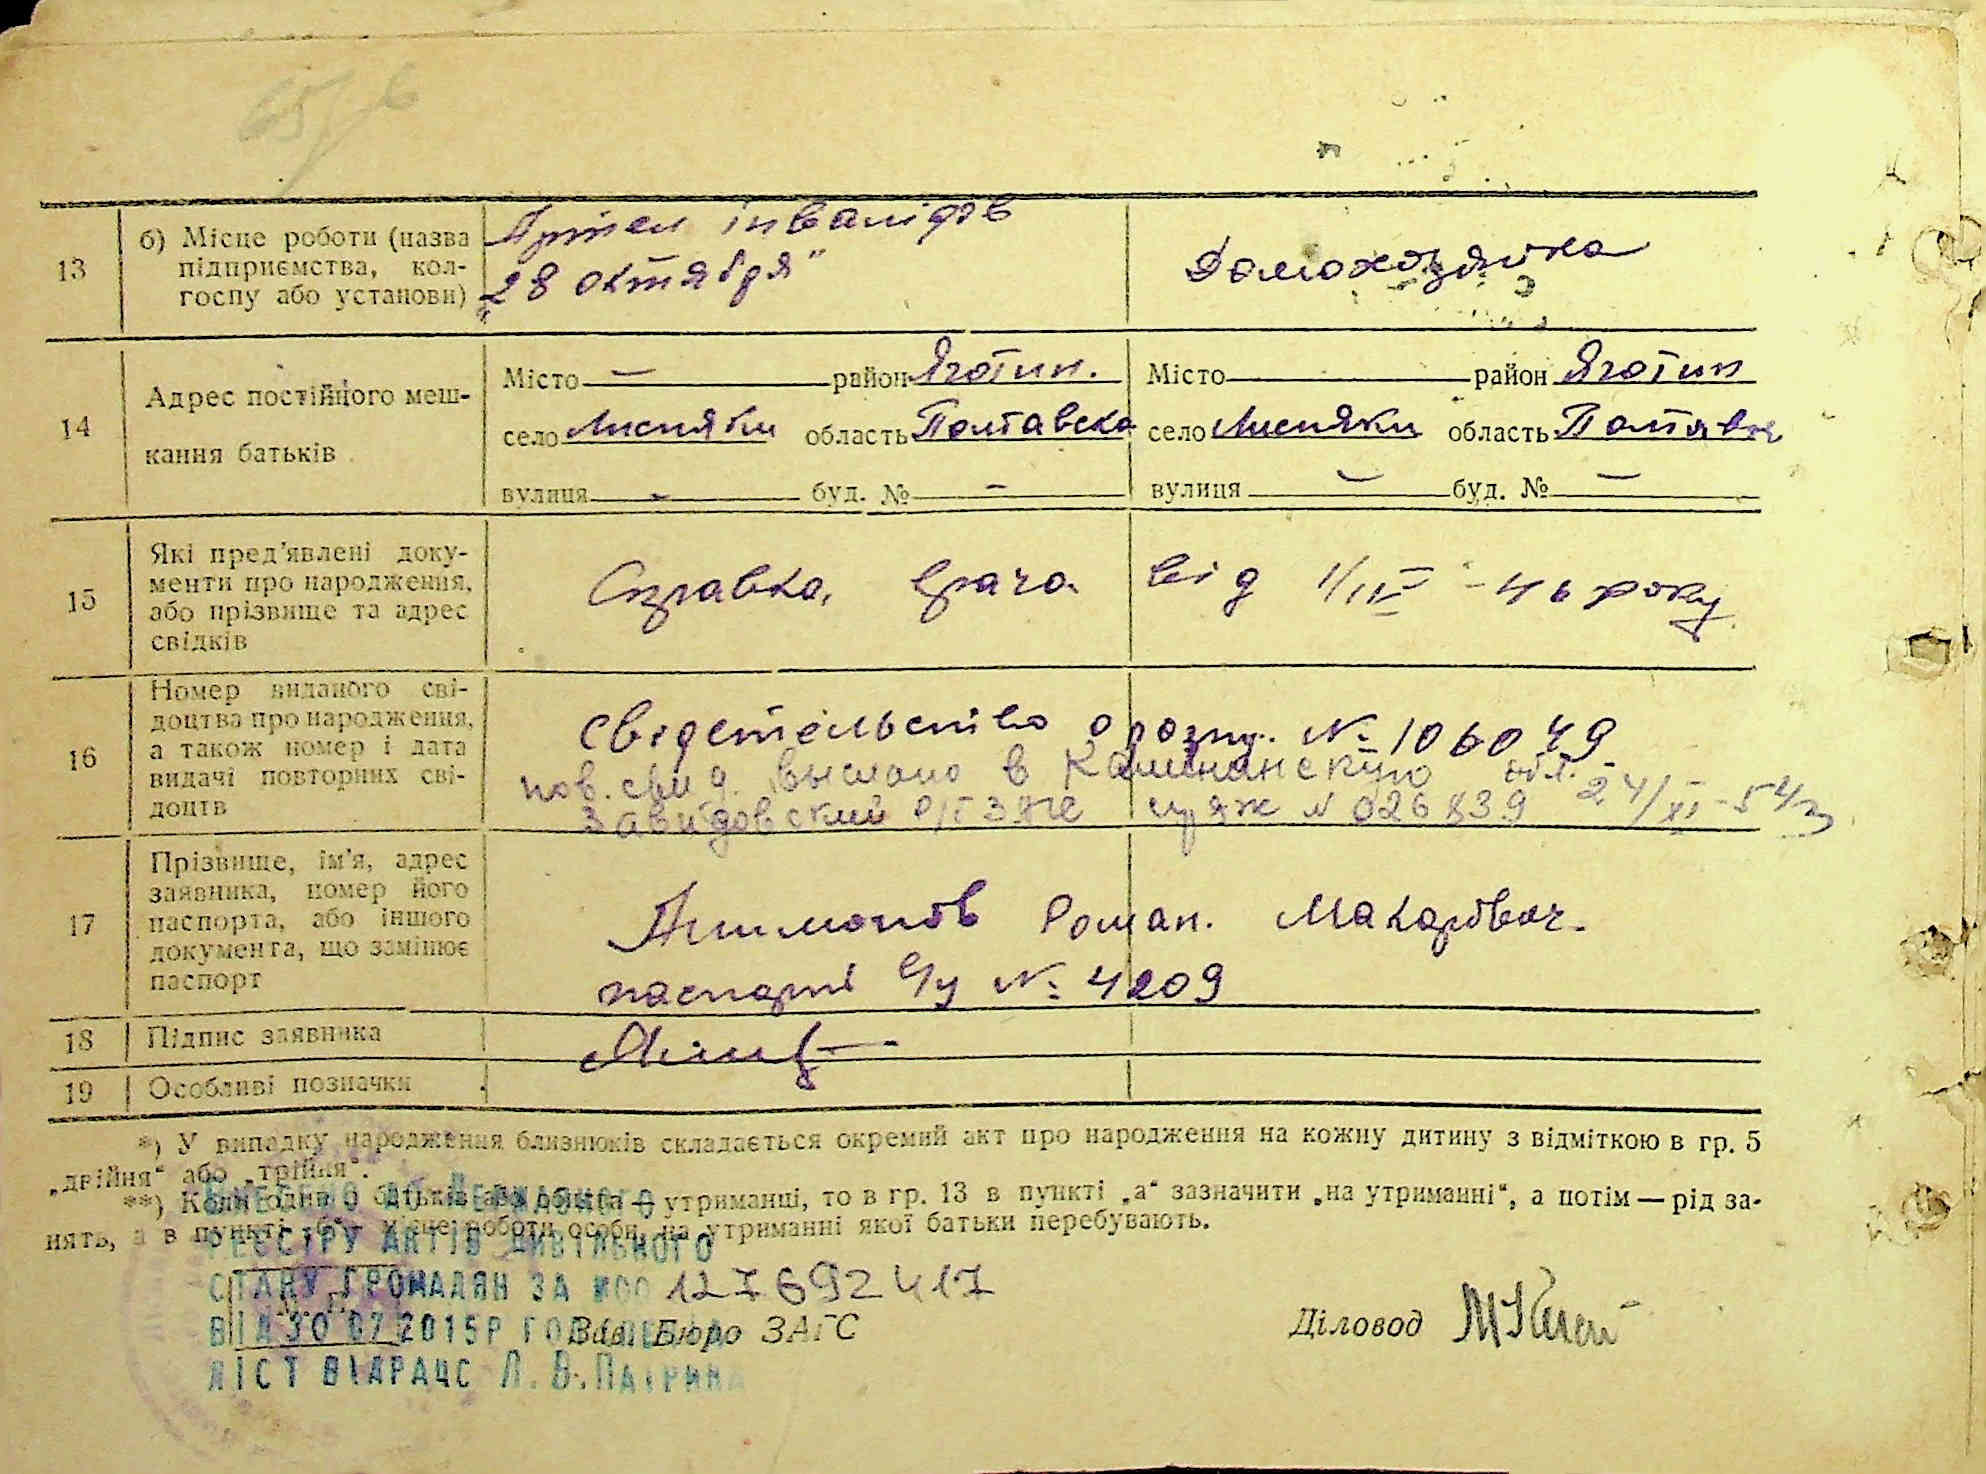 13
б) Місце роботи (назва
підприємства, кол-
госпу або установи)
Артел інвалідів
„28 октября"
Домохозяйка
14
Адрес постійного меш-
кання батьків
Місто — район Яготин.
село Лисняки область Полтавська
вулиця — буд. № —
Місто район Яготин
село Лисняки область Полтавск
вулиця — буд. № —
15
Які пред'явлені доку-
менти про народження,
або прізвище та адрес
свідків
Справка, врача від
46 року
16
Номер виданого сві-
доцтва про народження,
а також номер і дата
видачі повторних сві-
доцтв
Свідетельство о рожд. № 106049
пов. свид. выслано в Калининскую обл.
Завидовский р/ЗАГС № 026839 24/XI-54
17
Прізвище, ім'я, адрес
заявника, номер його
паспорта, або іншого
документа, що замінює
паспорт
Роман. Макарович.
паспорт № 4209
18
Підпис заявника
19
Особливі позначки
*) У випадку народження близнюків складається окремий акт про народження на кожну дитину з відміткою в гр. 5
„двійня“ або „трійня“.
**) Коли один з батьків або обидва — утриманці, то в гр. 13 в пункті „а“ зазначити „на утриманні“, а потім — рід за-
нять, а в пункті „б“ місце роботи особи, на утриманні якої батьки перебувають.
ВНЕСЕНО ДО ДЕРЖАВНОГО
РЕЄСТРУ АКТІВ ЦИВІЛЬНОГО
СТАНУ ГРОМАДЯН ЗА №00 127692417
ВІД 30 07 2015Р
М. П.
Зав. Бюро ЗАГС
Діловод
ЛІСТ ВІДРАЦС Л. В.